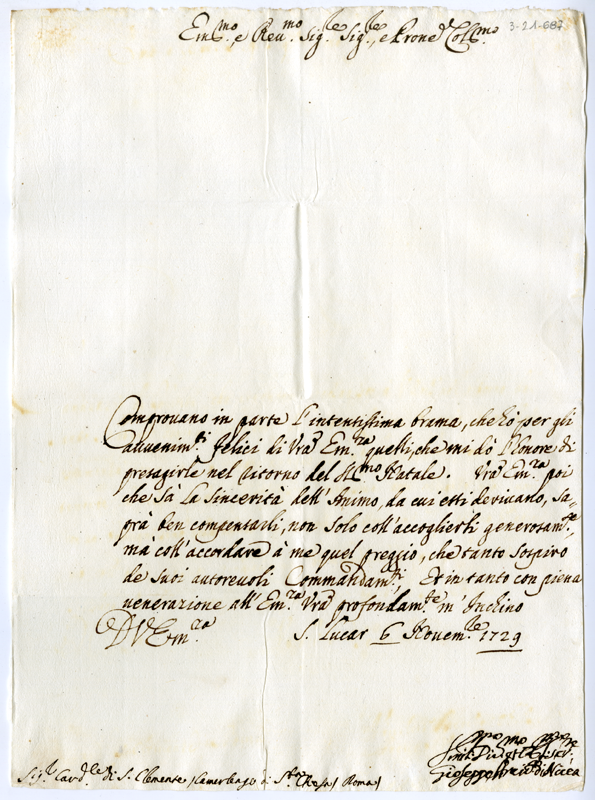 3-21-687
Em.mo, e Reu.mo Sig.re Sig.re, e Prone Coll.mo
Comprouano in parte l'intentissima brama, che hò per gli
auuenim.ti felici di Vra Em.za quelli, che mi dò l'honore di
presagirle nel ritorno del S.mo Natale. Vra Em.za poi
che sà la sincerità dell'Animo, da cui essi deriuano, sa=
prà ben compensarli, non solo coll'accoglierli generosam.te,
mà coll'accordare à me quel preggio, che tanto sospiro
de suoi autoreuoli Commandam.ti. Et in tanto con piena
uenerazione all'Em.za Vra profondam.te m'Inchino
D V Em.za
S. Lucar 6 Nouem.re 1729
Sig.r Card.le di S. Clemente, Camerlengo di S.ta Chiesa / Roma /